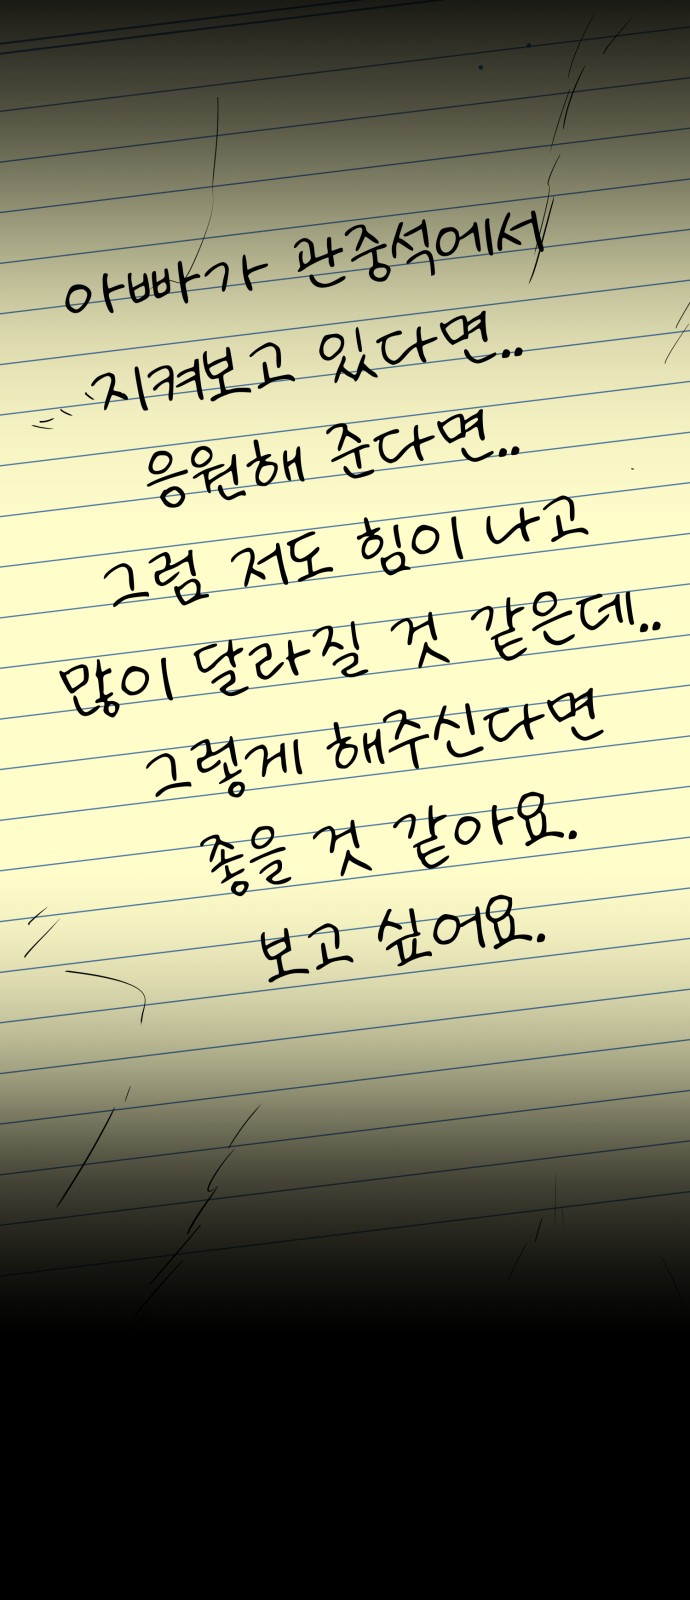 아빠가 관중석에서
지켜보고 있다면..
응원해 준다면..
그럼 저도 힘이 나고
많이 달라질 것 같은데..
그렇게 해주신다면
좋을 것 같아요.
보고 싶어요.